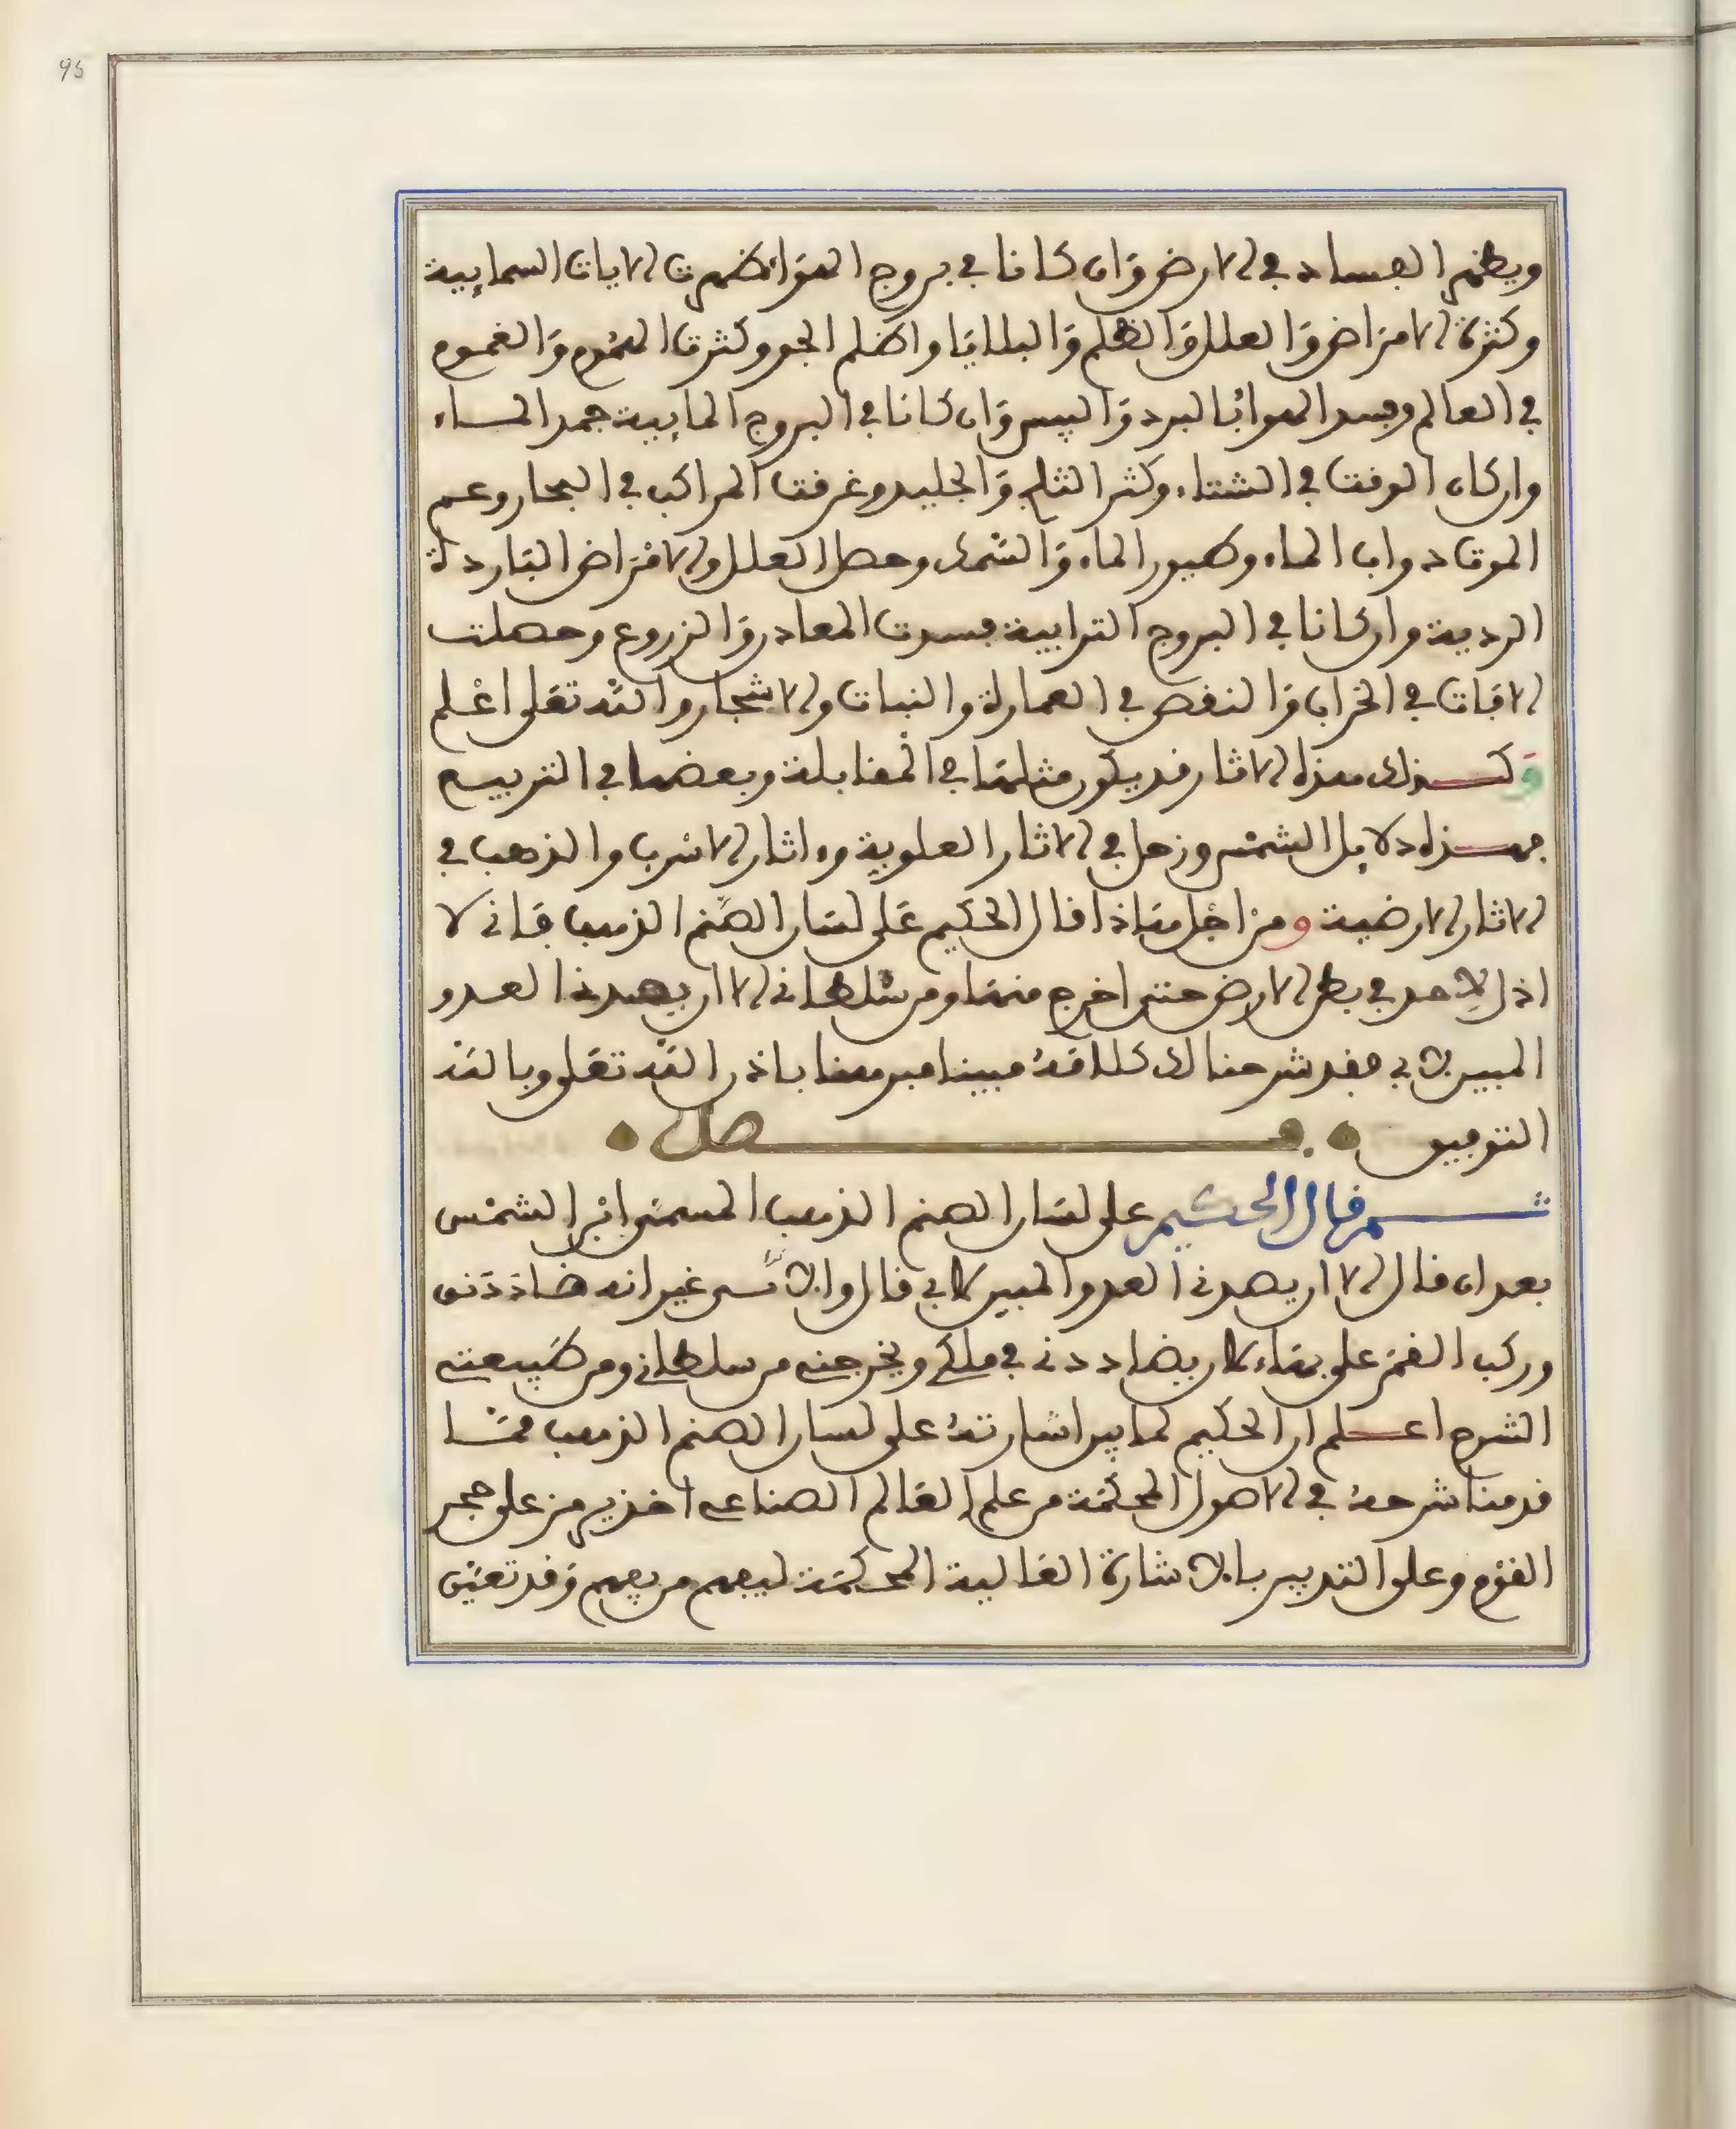 95
ويظهر الفساد في الارض وان كانا في بروج الهوا ظهرت الايات السمايية
وكثرة الامراض والعلل والظلم والبلايا واظلم الجو وكثرت الهموم والغموم
في العالم وفسد الهوا بالبرد واليبس وان كانا في البروج المايية جمد الماء
وان كان الوقت في الشتاء وكثر الثلج والجليد وغرقت المراكب في البحار وعم
الموتا دواب الماء وطيور الماء والسمك وحصل العلل والامراض الباردة
الردية وان كانا في البروج الترابية فسدت المعادن والزروع وحصلت
الافات في الخراب والنقص في العمارة والنبات والاشجار والله تعلى اعلم
وكذلك هذه الاثار قد يكون مثلها في المقابلة وبعضها في التربيع
فهذه دلايل الشمس وزحل في الاثار العلوية و اثار الاسرب والذهب في
الاثار الارضية ومن اجل هاذا قال الحكيم على لسان الصنم الذهب فاني لا
اذل لاحد في بطن الارض حتى اخرج منها ومن سلطاني الا ان يصدني العدو
المبين لابي فقد شرحنا لك كلامه مبينا مبرهنا باذن الله تعلى وبالله
التوفيق فصل
ثم قال الحكيم على لسان الصنم الذهب المسمى ابن الشمس
بعد ان قال الا ان يصدني العدو المبين لابي قال والانسى غير انه ضاددني
وركب القمر على بهاء كان يضاددني في ملكي ويخرجني من سلطاني ومن طبيعتي
الشرح اعلم ان الحكيم لما بين اشارته على لسان الصنم الذهب مما
قدمنا شرحه في الاصول المحكمة من علم العالم الصناعي اخذ يرمز على حجر
القوم وعلى التدبير بالاشارة العالية المحكمة ليفهم من يفهم وقد تعين